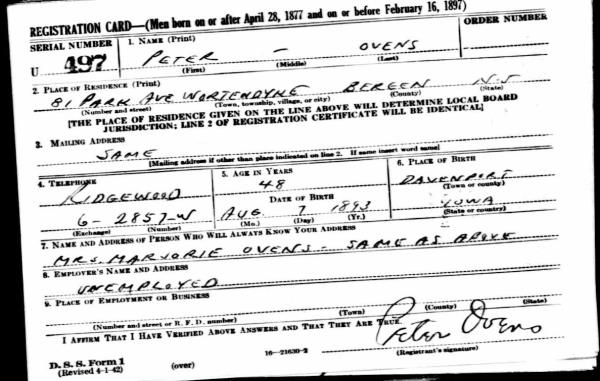 REGISTRATION CARD—(Men born on or after April 28, 1877 and on or before February 16, 1897)
SERIAL NUMBER 1. NAME (Print) ORDER NUMBER
U 497 PETER - OVENS
(First) (Middle) (Last)
2. PLACE OF RESIDENCE (Print)
81 PARK AVE WORTENDYKE BERGEN N.J
(Number and street) (Town, township, village, or city) (County) (State)
[THE PLACE OF RESIDENCE GIVEN ON THE LINE ABOVE WILL DETERMINE LOCAL BOARD
JURISDICTION; LINE 2 OF REGISTRATION CERTIFICATE WILL BE IDENTICAL]
3. MAILING ADDRESS
SAME
[Mailing address if other than place indicated on line 2. If same insert word same]
4. TELEPHONE 5. AGE IN YEARS 6. PLACE OF BIRTH
RIDGEWOOD 48 DAVENPORT
DATE OF BIRTH (Town or county)
6- 2857-W AUG 7 1893 IOWA
(Exchange) (Number) (Mo.) (Day) (Yr.) (State or country)
7. NAME AND ADDRESS OF PERSON WHO WILL ALWAYS KNOW YOUR ADDRESS
MRS. MARJORIE OVENS - SAME AS ABOVE
8. EMPLOYER'S NAME AND ADDRESS
UNEMPLOYED
9. PLACE OF EMPLOYMENT OR BUSINESS
(Number and street or R. F. D. number) (Town) (County) (State)
I AFFIRM THAT I HAVE VERIFIED ABOVE ANSWERS AND THAT THEY ARE TRUE.
Peter Ovens
D. S. S. Form 1 16—21630-2 (Registrant's signature)
(Revised 4-1-42) (over)